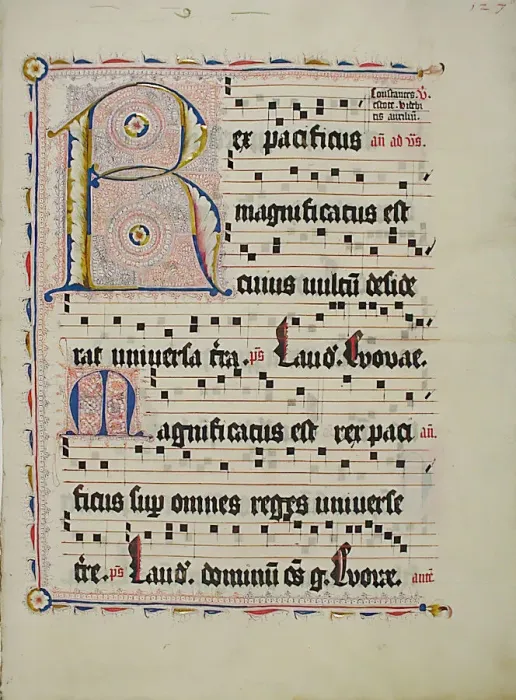 127
Constantes. V.
estote. videbi
tis auxiliū.
Rex pacificus añ ad vs.
magnificatus est
cuius uultū deside
rat uniuersa t̄ra. ps̄ Laud. Euouae.
Magnificatus est rex paci añ.
ficus sup omnes reges uniuerse
t̄re. ps̄ Laud. dominū ōs g. Euoue. antē